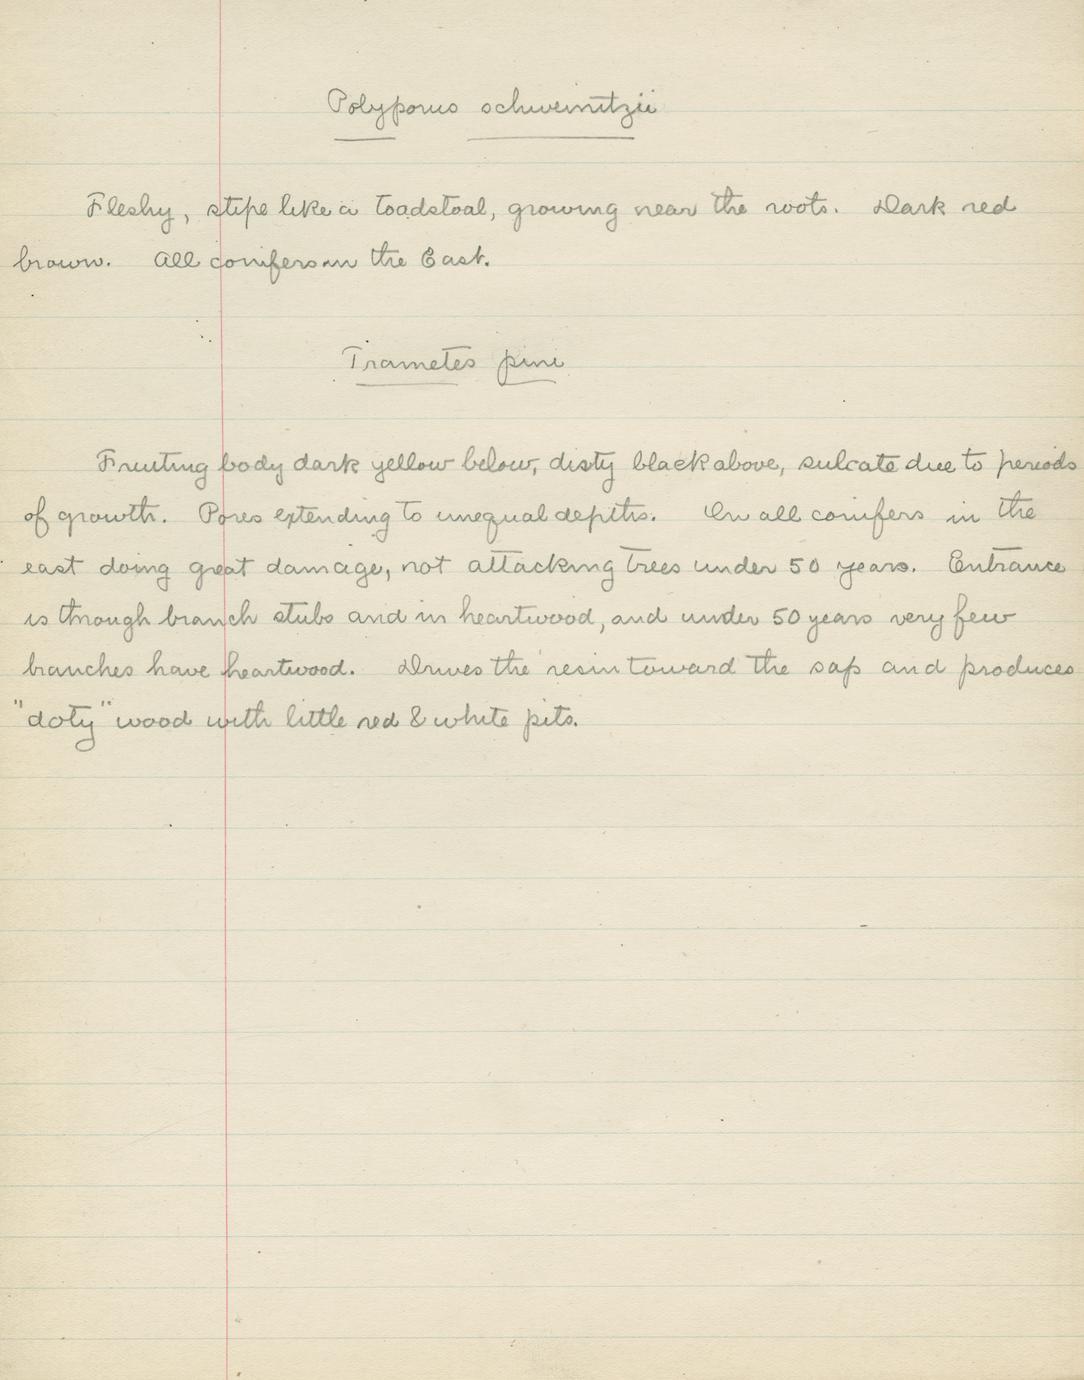 Polyporus schweinitzii
Fleshy, stipe like a toadstoal, growing near the roots. Dark red
brown. All conifers in the East.
Trametes pini
Fruiting body dark yellow below, disty black above, sulcate due to periods
of growth. Pores extending to unequal depths. On all conifers in the
east doing great damage, not attacking trees under 50 years. Entrance
is through branch stubs and in heartwood, and under 50 years very few
branches have heartwood. Drives the resin toward the sap and produces
"doty" wood with little red & white pits.